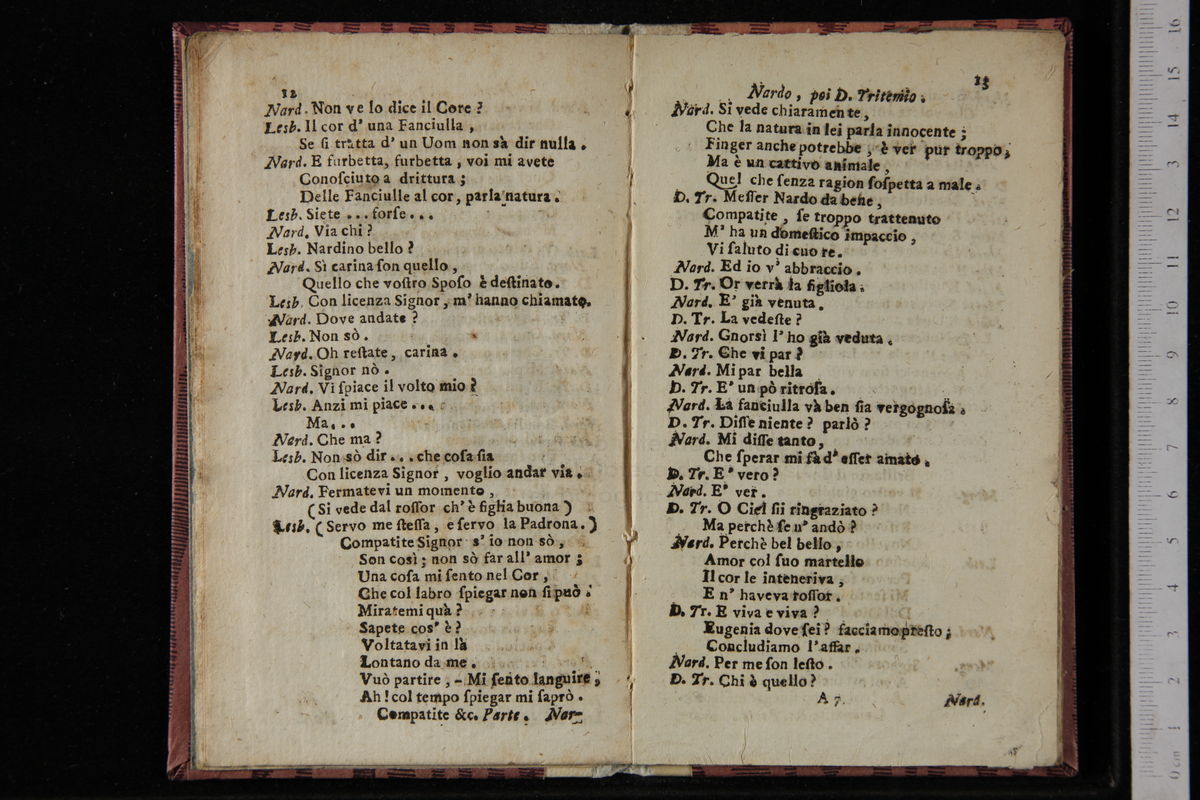 12
Nard. Non ve lo dice il Core ?
Lesb. Il cor d' una Fanciulla ,
Se ſi tratta d' un Uom non sà dir nulla .
Nard. E furbetta, furbetta , voi mi avete
Conoſciuto a drittura ;
Delle Fanciulle al cor, parla natura .
Lesb. Siete ... forſe ...
Nard. Via chi ?
Lesb. Nardino bello ?
Nard. Sì carina ſon quello ,
Quello che voſtro Spoſo è deſtinato.
Lesb. Con licenza Signor, m' hanno chiamato.
Nard. Dove andate ?
Lesb. Non sò .
Nard. Oh reſtate , carina .
Lesb. Signor nò .
Nard. Vi ſpiace il volto mio ?
Lesb. Anzi mi piace ...
Ma...
Nard. Che ma ?
Lesb. Non sò dir ... che coſa ſia
Con licenza Signor , voglio andar via .
Nard. Fermatevi un momento ,
( Si vede dal roſſor ch' è figlia buona )
Lesb. ( Servo me ſteſſa , e ſervo la Padrona. )
Compatite Signor s' io non sò ,
Son così ; non sò far all' amor ;
Una coſa mi ſento nel Cor ,
Che col labro ſpiegar non ſi può .
Miratemi quà ?
Sapete cos' è ?
Voltatavi in là
Lontano da me .
Vuò partire , - Mi ſento languire ;
Ah ! col tempo ſpiegar mi ſaprò .
Compatite &c. Parte . Nar-
13
Nardo , poi D. Tritemio .
Nard. Si vede chiaramente ,
Che la natura in lei parla innocente ;
Finger anche potrebbe , è ver pur troppo ;
Ma è un cattivo animale ,
Quel che ſenza ragion ſoſpetta a male .
D. Tr. Meſſer Nardo da bene ,
Compatite , ſe troppo trattenuto
M' ha un domeſtico impaccio ,
Vi ſaluto di cuore.
Nard. Ed io v' abbraccio .
D. Tr. Or verrà la figliola .
Nard. E' già venuta .
D. Tr. La vedeſte ?
Nard. Gnorsì l' ho già veduta .
D. Tr. Che vi par ?
Nard. Mi par bella
D. Tr. E' un pò ritroſa .
Nard. La fanciulla và ben ſia vergognoſa .
D. Tr. Diſſe niente ? parlò ?
Nard. Mi diſſe tanto ,
Che ſperar mi fà d' eſſer amato .
D. Tr. E' vero ?
Nard. E' ver .
D. Tr. O Ciel ſii ringraziato ?
Ma perchè ſe n' andò ?
Nard. Perchè bel bello ,
Amor col ſuo martello
Il cor le inteneriva ,
E n' haveva roſſor .
D. Tr. E viva e viva ?
Eugenia dove ſei ? facciamo preſto ;
Concludiamo l' affar .
Nard. Per me ſon leſto .
D. Tr. Chi è quello ?
A 7. Nard.
0 cm 1 2 3 4 5 6 7 8 9 10 11 12 13 14 15 16